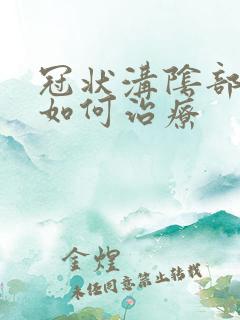 冠状溝陰部
如何治療
金煌
未经同意禁止转载